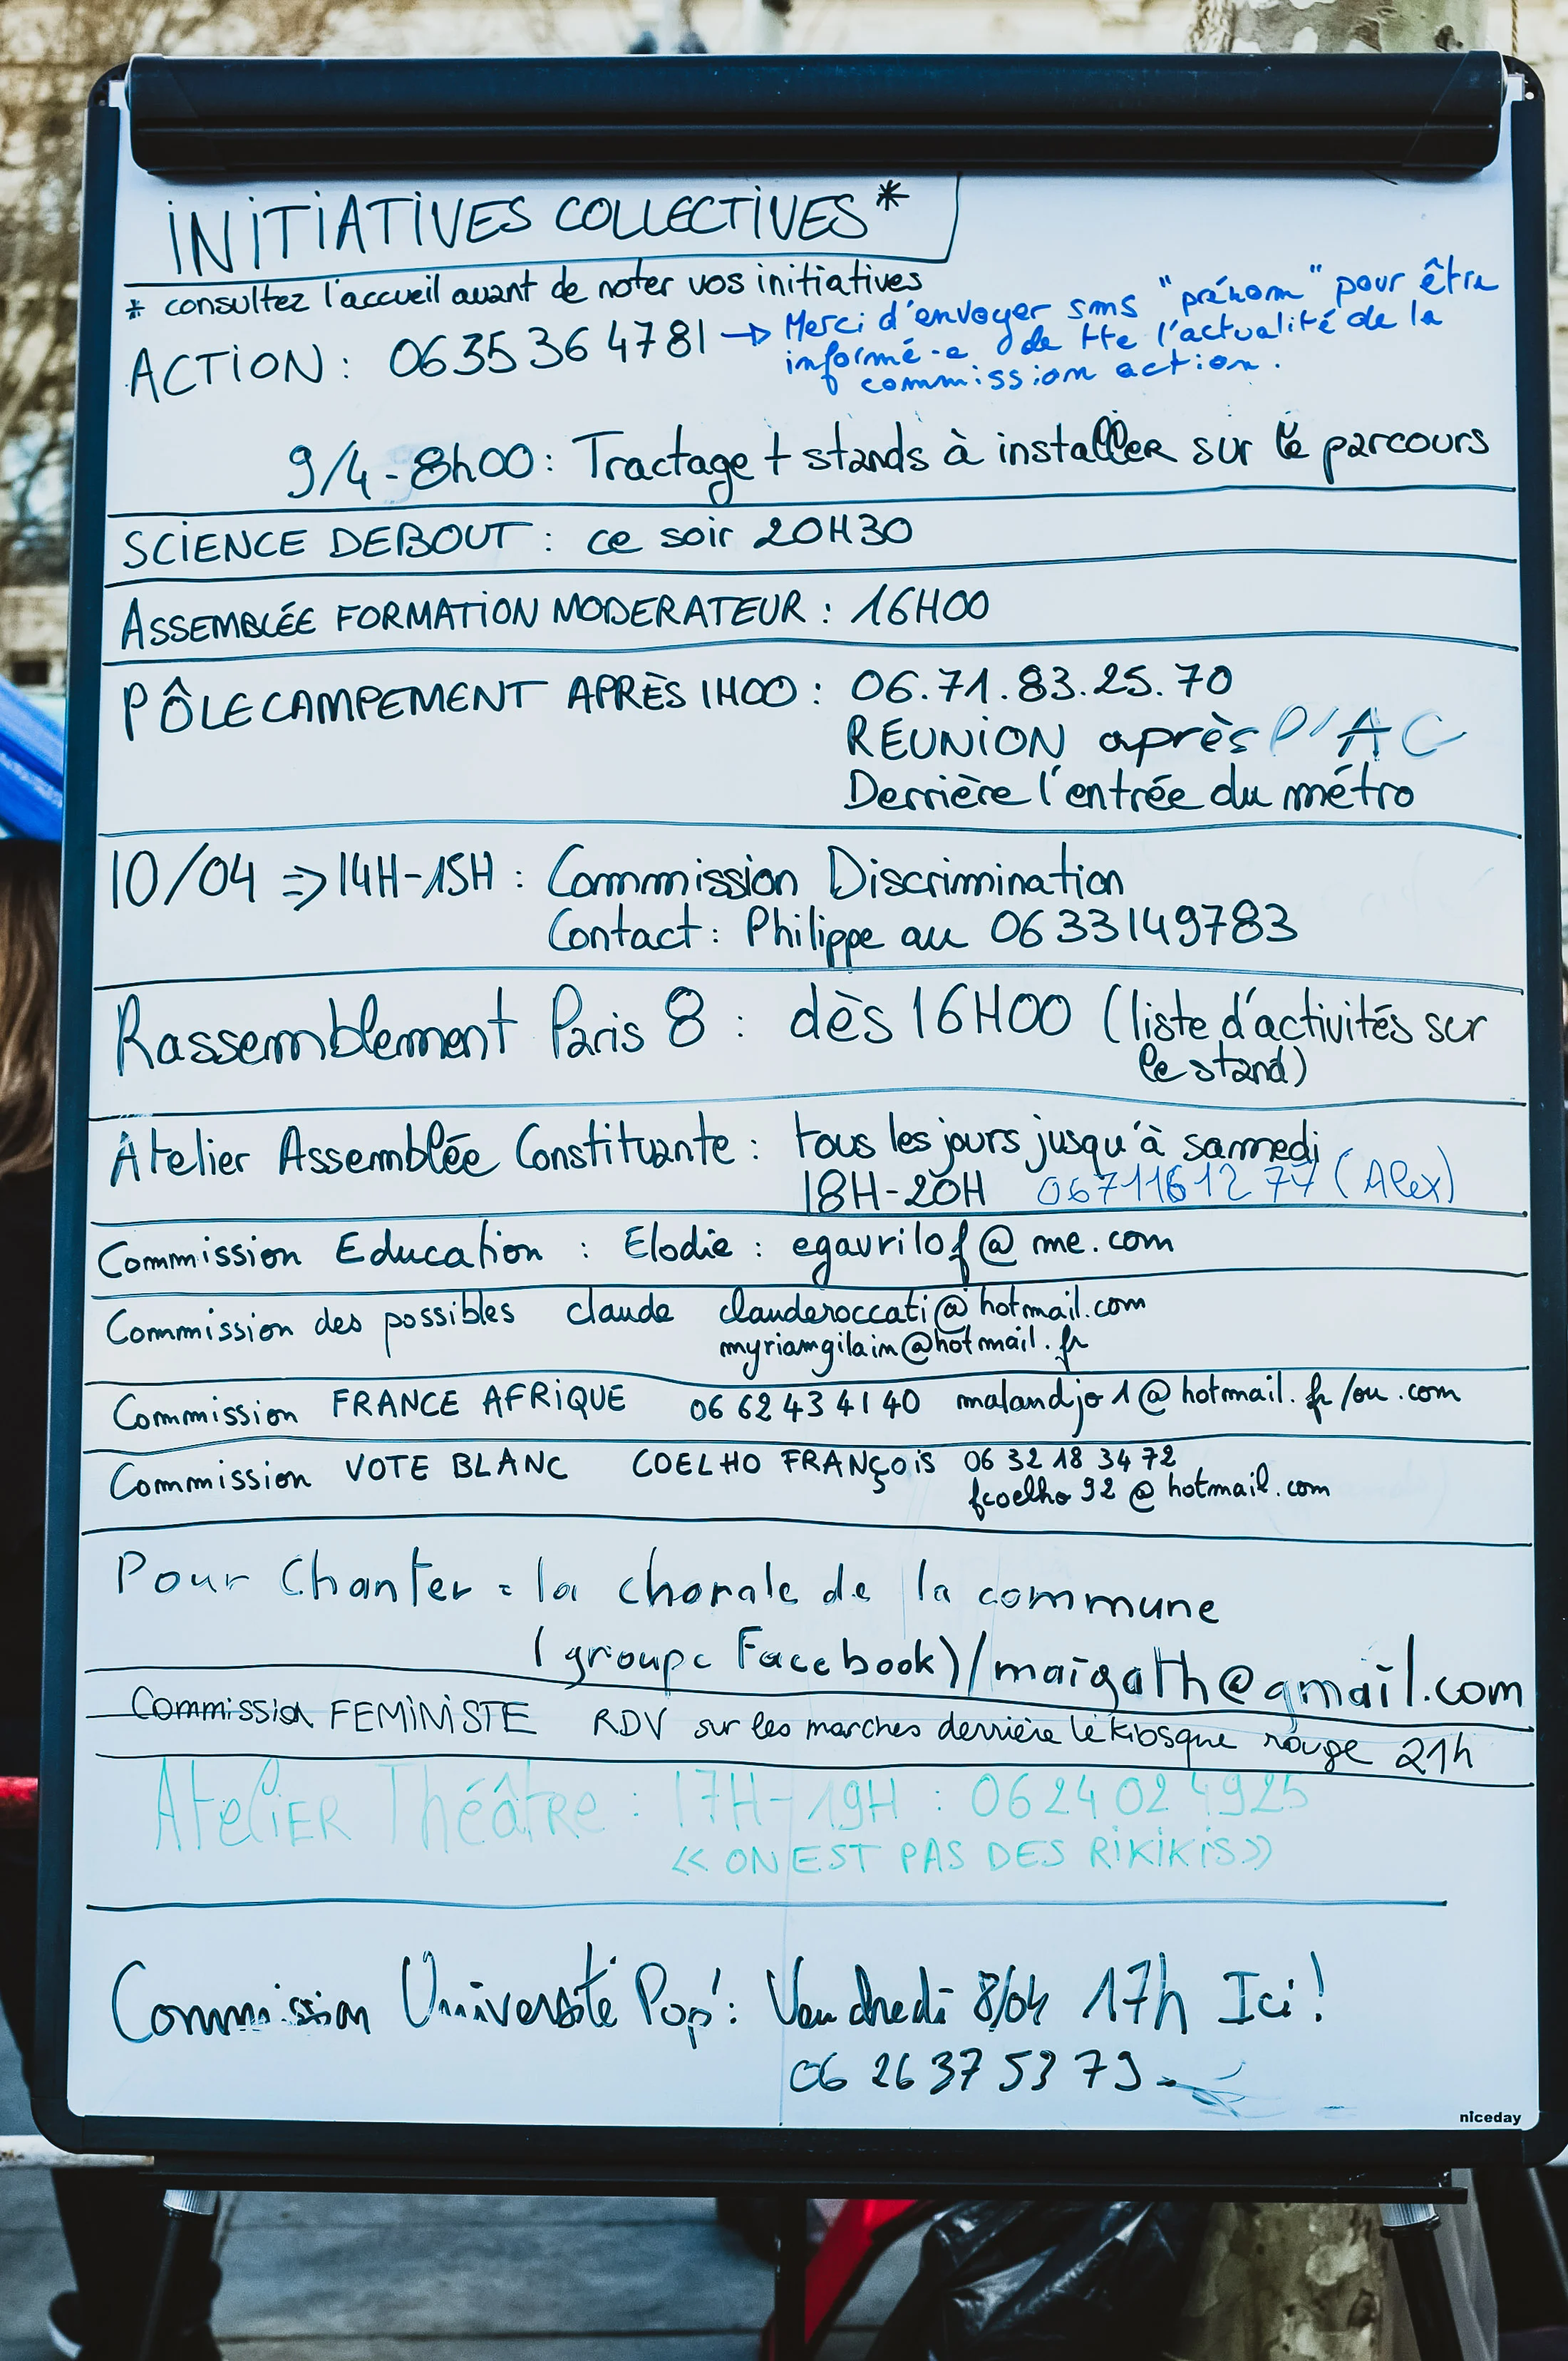 INITIATIVES COLLECTIVES*
* consultez l'accueil avant de noter vos initiatives
ACTION : 0635364781 → Merci d'envoyer sms "prénom" pour être
informé-e de tte l'actualité de la
commission action.
9/4-8h00: Tractage + stands à installer sur le parcours
SCIENCE DEBOUT : ce soir 20H30
ASSEMBLÉE FORMATION MODERATEUR : 16H00
PÔLE CAMPEMENT APRÈS 1H00 : 06.71.83.25.70
RÉUNION après l'AG
Derrière l'entrée du métro
10/04 ⇒ 14H-15H : Commission Discrimination
Contact : Philippe au 0633149783
Rassemblement Paris 8 : dès 16H00 (liste d'activités sur
le stand)
Atelier Assemblée Constituante : tous les jours jusqu'à samedi
18H-20H 0671161277 (Alex)
Commission Education : Elodie : egavrilof@me.com
Commission des possibles claude clauderoccati@hotmail.com
myriamgilain@hotmail.fr
Commission FRANCE AFRIQUE 06 62 43 41 40 malandjo1@hotmail.fr/ou .com
Commission VOTE BLANC COELHO FRANÇOIS 06 32 18 34 72
fcoelho92@hotmail.com
Pour Chanter : la chorale de la commune
(groupe Facebook)/maigath@gmail.com
Commission FEMINISTE RDV sur les marches derrière le kiosque rouge 21h
Atelier Théâtre : 17H-19H : 0624024925
<< ON EST PAS DES RIKIKIS>>
Commission Université Pop' : Vendredi 8/04 17h Ici !
06 26 37 53 79
niceday